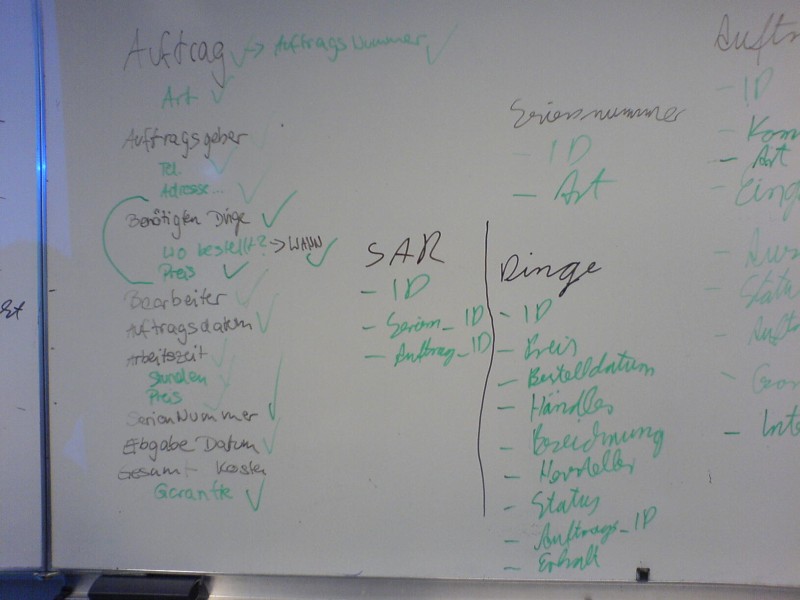 Auftrag -> AuftragsNummer
Art
Auftragsgeber
Tel
Adresse...
Benötigten Dinge
Wo bestellt? -> WANN
Preis
Bearbeiter
Auftragsdatum
Arbeitszeit
Stunden
Preis
SerienNummer
Abgabe Datum
Gesamt Kosten
Garantie
SAR
- ID
- Serien_ID
- Auftrag_ID
Seriennummer
- ID
- Art
Dinge
- ID
- Preis
- Bestelldatum
- Händler
- Bezeichnung
- Hersteller
- Status
- Auftrags_ID
- Erhalt
Auftr
- ID
- Kom
- Art
- Eing
- Aus
- Statu
- Auft
- Ges
- Inte